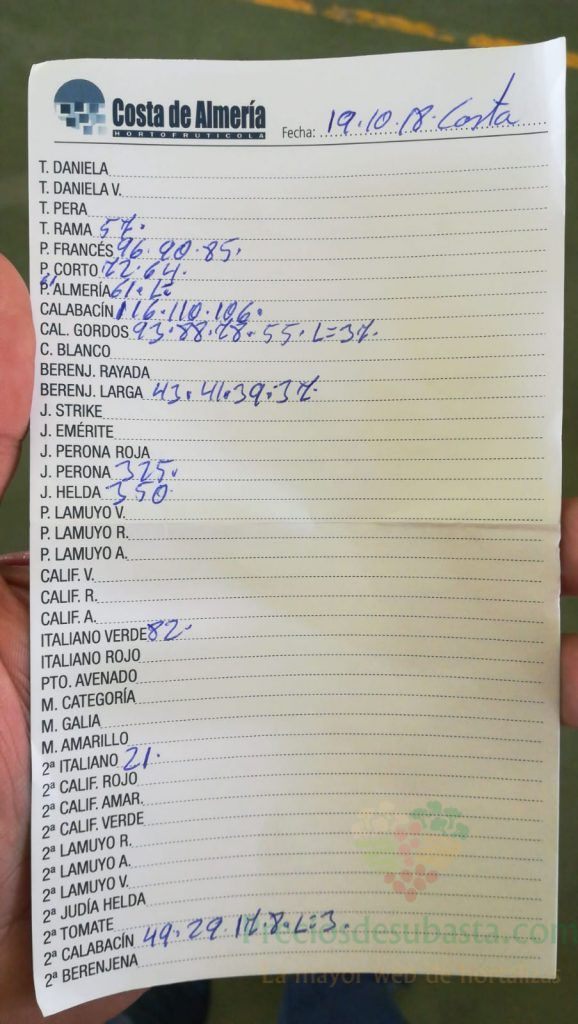 Costa de Almería
HORTOFRUTICOLA
Fecha: 19.10.18. Costa
T. DANIELA
T. DANIELA V.
T. PERA
T. RAMA 57.
P. FRANCÉS 96.90.85.
P. CORTO 72.64.
P. ALMERÍA 61.L=
CALABACÍN 116.110.106.
CAL. GORDOS 93.88.78.55.L=37.
C. BLANCO
BERENJ. RAYADA
BERENJ. LARGA 43.41.39.37.
J. STRIKE
J. EMÉRITE
J. PERONA ROJA
J. PERONA 325.
J. HELDA 350.
P. LAMUYO V.
P. LAMUYO R.
P. LAMUYO A.
CALIF. V.
CALIF. R.
CALIF. A.
ITALIANO VERDE 82.
ITALIANO ROJO
PTO. AVENADO
M. CATEGORÍA
M. GALIA
M. AMARILLO
2ª ITALIANO 21.
2ª CALIF. ROJO
2ª CALIF. AMAR.
2ª CALIF. VERDE
2ª LAMUYO R.
2ª LAMUYO A.
2ª LAMUYO V.
2ª JUDÍA HELDA
2ª TOMATE
2ª CALABACÍN 49.29.17.8.L=3.
2ª BERENJENA
Preciosdesubasta.com
La mayor web de hortalizas